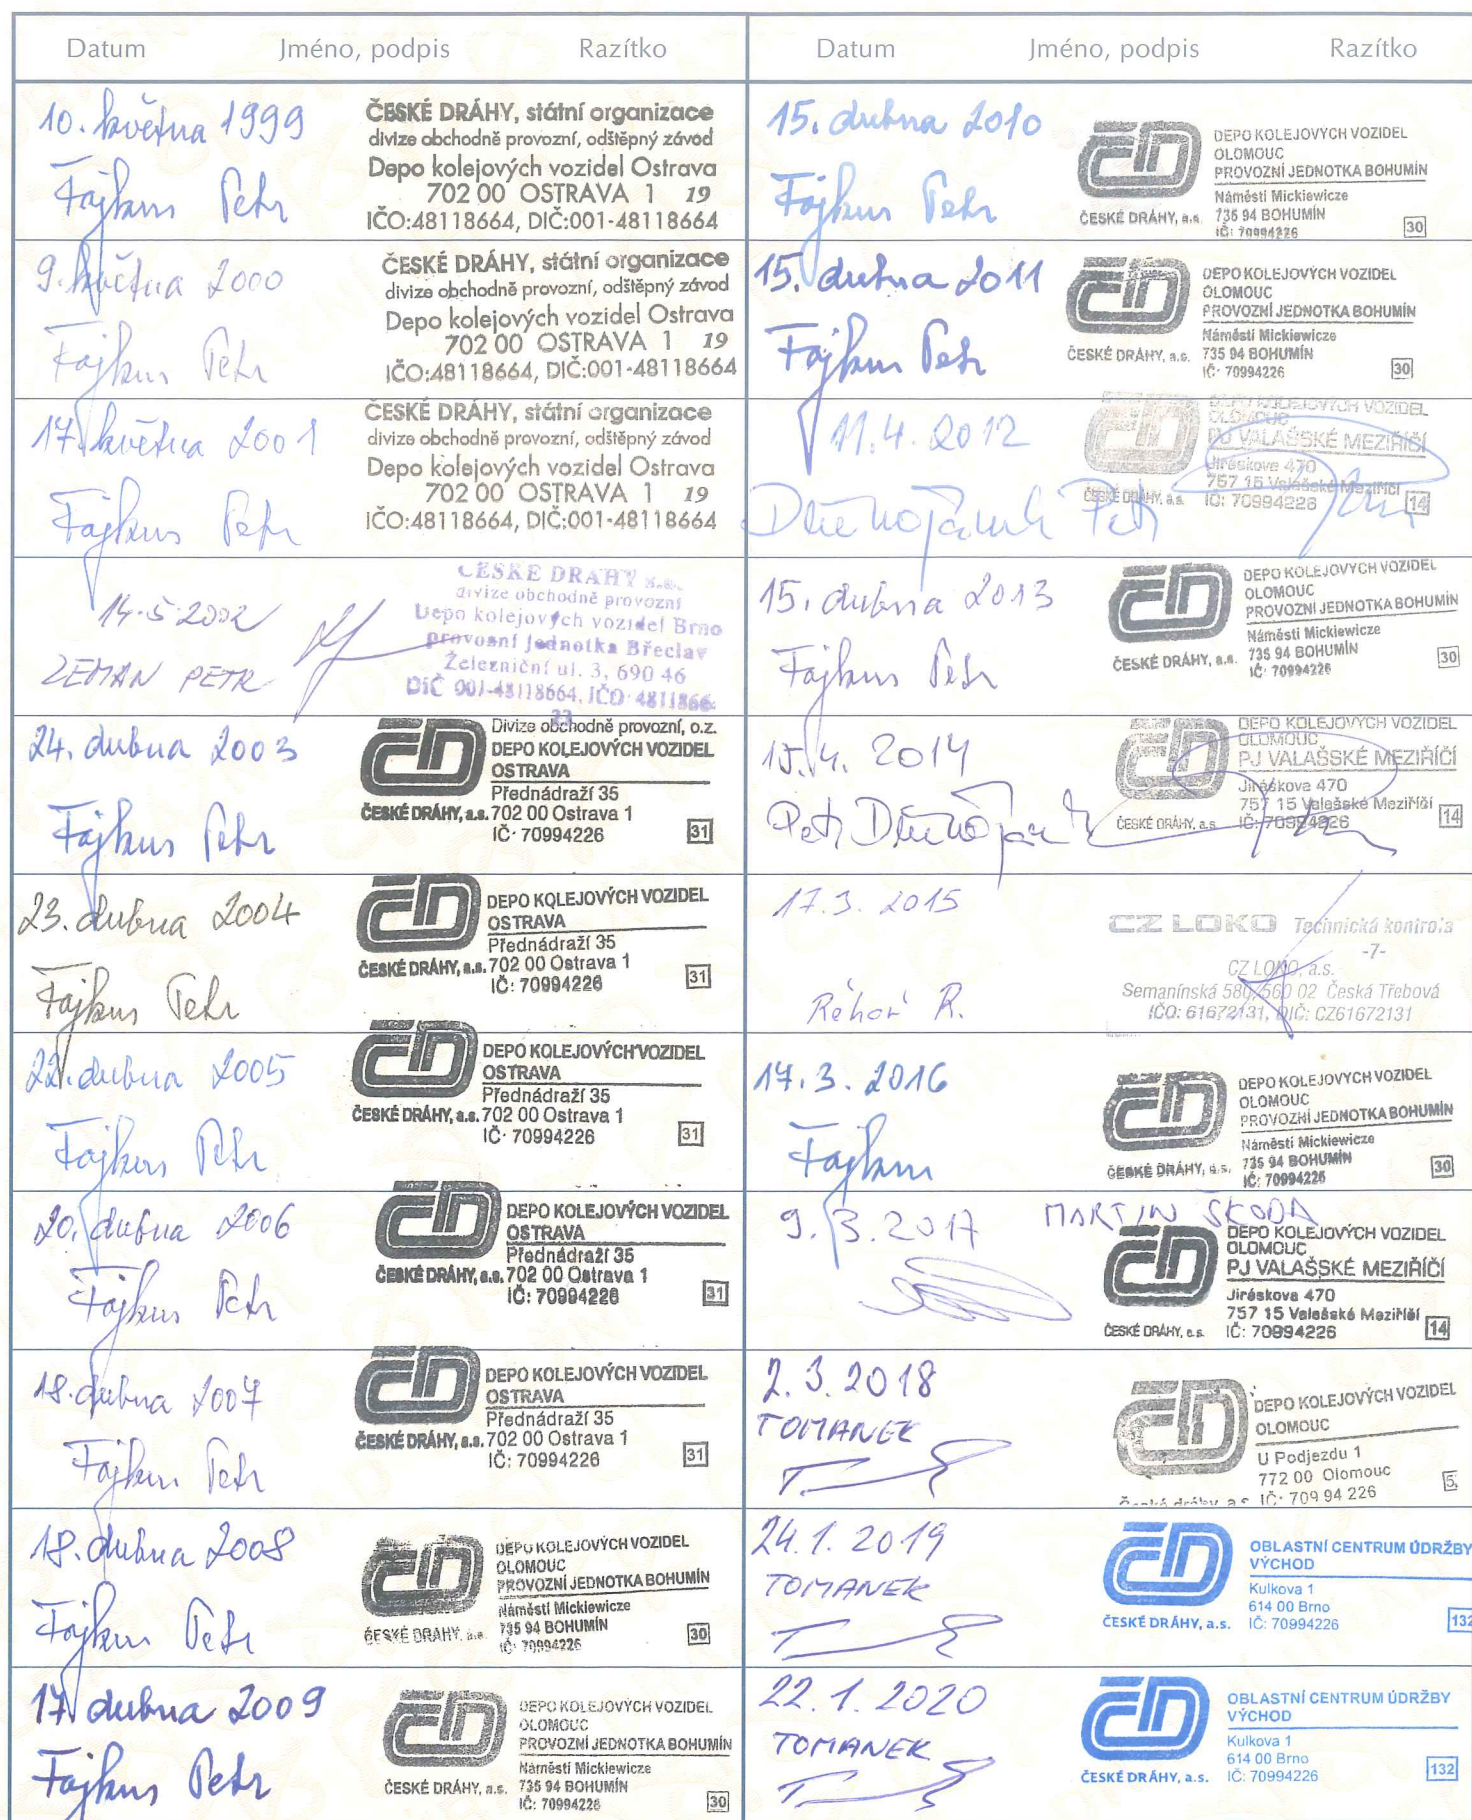 Datum Jméno, podpis Razítko
10. května 1999
Fajkus Petr
ČESKÉ DRÁHY, státní organizace
divize obchodně provozní, odštěpný závod
Depo kolejových vozidel Ostrava
702 00 OSTRAVA 1 19
IČO:48118664, DIČ:001-48118664
9. května 2000
Fajkus Petr
ČESKÉ DRÁHY, státní organizace
divize obchodně provozní, odštěpný závod
Depo kolejových vozidel Ostrava
702 00 OSTRAVA 1 19
IČO:48118664, DIČ:001-48118664
17. května 2001
Fajkus Petr
ČESKÉ DRÁHY, státní organizace
divize obchodně provozní, odštěpný závod
Depo kolejových vozidel Ostrava
702 00 OSTRAVA 1 19
IČO:48118664, DIČ:001-48118664
14.5.2002
ZEMAN PETR
ČESKÉ DRÁHY s.o.
divize obchodně provozní
Depo kolejových vozidel Brno
provozní jednotka Břeclav
Železniční ul. 3, 690 46
DIČ 001-48118664, IČO 4811866
23
24. dubna 2003
Fajkus Petr
ČD
Divize obchodně provozní, o.z.
DEPO KOLEJOVÝCH VOZIDEL
OSTRAVA
Přednádraží 35
ČESKÉ DRÁHY, a.s. 702 00 Ostrava 1
IČ: 70994226 31
23. dubna 2004
Fajkus Petr
ČD
DEPO KOLEJOVÝCH VOZIDEL
OSTRAVA
Přednádraží 35
ČESKÉ DRÁHY, a.s. 702 00 Ostrava 1
IČ: 70994226 31
22. dubna 2005
Fajkus Petr
ČD
DEPO KOLEJOVÝCH VOZIDEL
OSTRAVA
Přednádraží 35
ČESKÉ DRÁHY, a.s. 702 00 Ostrava 1
IČ: 70994226 31
20. dubna 2006
Fajkus Petr
ČD
DEPO KOLEJOVÝCH VOZIDEL
OSTRAVA
Přednádraží 35
ČESKÉ DRÁHY, a.s. 702 00 Ostrava 1
IČ: 70994226 31
18. dubna 2007
Fajkus Petr
ČD
DEPO KOLEJOVÝCH VOZIDEL
OSTRAVA
Přednádraží 35
ČESKÉ DRÁHY, a.s. 702 00 Ostrava 1
IČ: 70994226 31
18. dubna 2008
Fajkus Petr
ČD
DEPO KOLEJOVÝCH VOZIDEL
OLOMOUC
PROVOZNÍ JEDNOTKA BOHUMÍN
Náměstí Mickiewicze
ČESKÉ DRÁHY, a.s. 735 94 BOHUMÍN
IČ: 70994226 30
17. dubna 2009
Fajkus Petr
ČD
DEPO KOLEJOVÝCH VOZIDEL
OLOMOUC
PROVOZNÍ JEDNOTKA BOHUMÍN
Náměstí Mickiewicze
ČESKÉ DRÁHY, a.s. 735 94 BOHUMÍN
IČ: 70994226 30
Datum Jméno, podpis Razítko
15. dubna 2010
Fajkus Petr
ČD
DEPO KOLEJOVÝCH VOZIDEL
OLOMOUC
PROVOZNÍ JEDNOTKA BOHUMÍN
Náměstí Mickiewicze
ČESKÉ DRÁHY, a.s. 735 94 BOHUMÍN
IČ: 70994226 30
15. dubna 2011
Fajkus Petr
ČD
DEPO KOLEJOVÝCH VOZIDEL
OLOMOUC
PROVOZNÍ JEDNOTKA BOHUMÍN
Náměstí Mickiewicze
ČESKÉ DRÁHY, a.s. 735 94 BOHUMÍN
IČ: 70994226 30
11.4.2012
Petr
ČD
DEPO KOLEJOVÝCH VOZIDEL
OLOMOUC
PJ VALAŠSKÉ MEZIŘÍČÍ
Jiráskova 470
757 15 Valašské Meziříčí
ČESKÉ DRÁHY, a.s. IČ: 70994226 14
15. dubna 2013
Fajkus Petr
ČD
DEPO KOLEJOVÝCH VOZIDEL
OLOMOUC
PROVOZNÍ JEDNOTKA BOHUMÍN
Náměstí Mickiewicze
ČESKÉ DRÁHY, a.s. 735 94 BOHUMÍN
IČ: 70994226 30
15.4. 2014
Petr
ČD
DEPO KOLEJOVÝCH VOZIDEL
OLOMOUC
PJ VALAŠSKÉ MEZIŘÍČÍ
Jiráskova 470
757 15 Valašské Meziříčí
ČESKÉ DRÁHY, a.s. IČ: 70994226 14
17.3. 2015
Řehoř R.
CZ LOKO Technická kontrola
-7-
CZ LOKO, a.s.
Semanínská 580, 560 02 Česká Třebová
IČO: 61672131, DIČ: CZ61672131
17.3. 2016
Fajkus
ČD
DEPO KOLEJOVÝCH VOZIDEL
OLOMOUC
PROVOZNÍ JEDNOTKA BOHUMÍN
Náměstí Mickiewicze
ČESKÉ DRÁHY, a.s. 735 94 BOHUMÍN
IČ: 70994226 30
9.3.2017 MARTIN ŠKODA
ČD
DEPO KOLEJOVÝCH VOZIDEL
OLOMOUC
PJ VALAŠSKÉ MEZIŘÍČÍ
Jiráskova 470
757 15 Valašské Meziříčí
ČESKÉ DRÁHY, a.s. IČ: 70994226 14
2.3.2018
TOMANEK
ČD
DEPO KOLEJOVÝCH VOZIDEL
OLOMOUC
U Podjezdu 1
772 00 Olomouc
České dráhy, a.s. IČ: 709 94 226 5
24.1.2019
TOMANEK
ČD
OBLASTNÍ CENTRUM ÚDRŽBY
VÝCHOD
Kulkova 1
614 00 Brno
ČESKÉ DRÁHY, a.s. IČ: 70994226 132
22.1.2020
TOMANEK
ČD
OBLASTNÍ CENTRUM ÚDRŽBY
VÝCHOD
Kulkova 1
614 00 Brno
ČESKÉ DRÁHY, a.s. IČ: 70994226 132